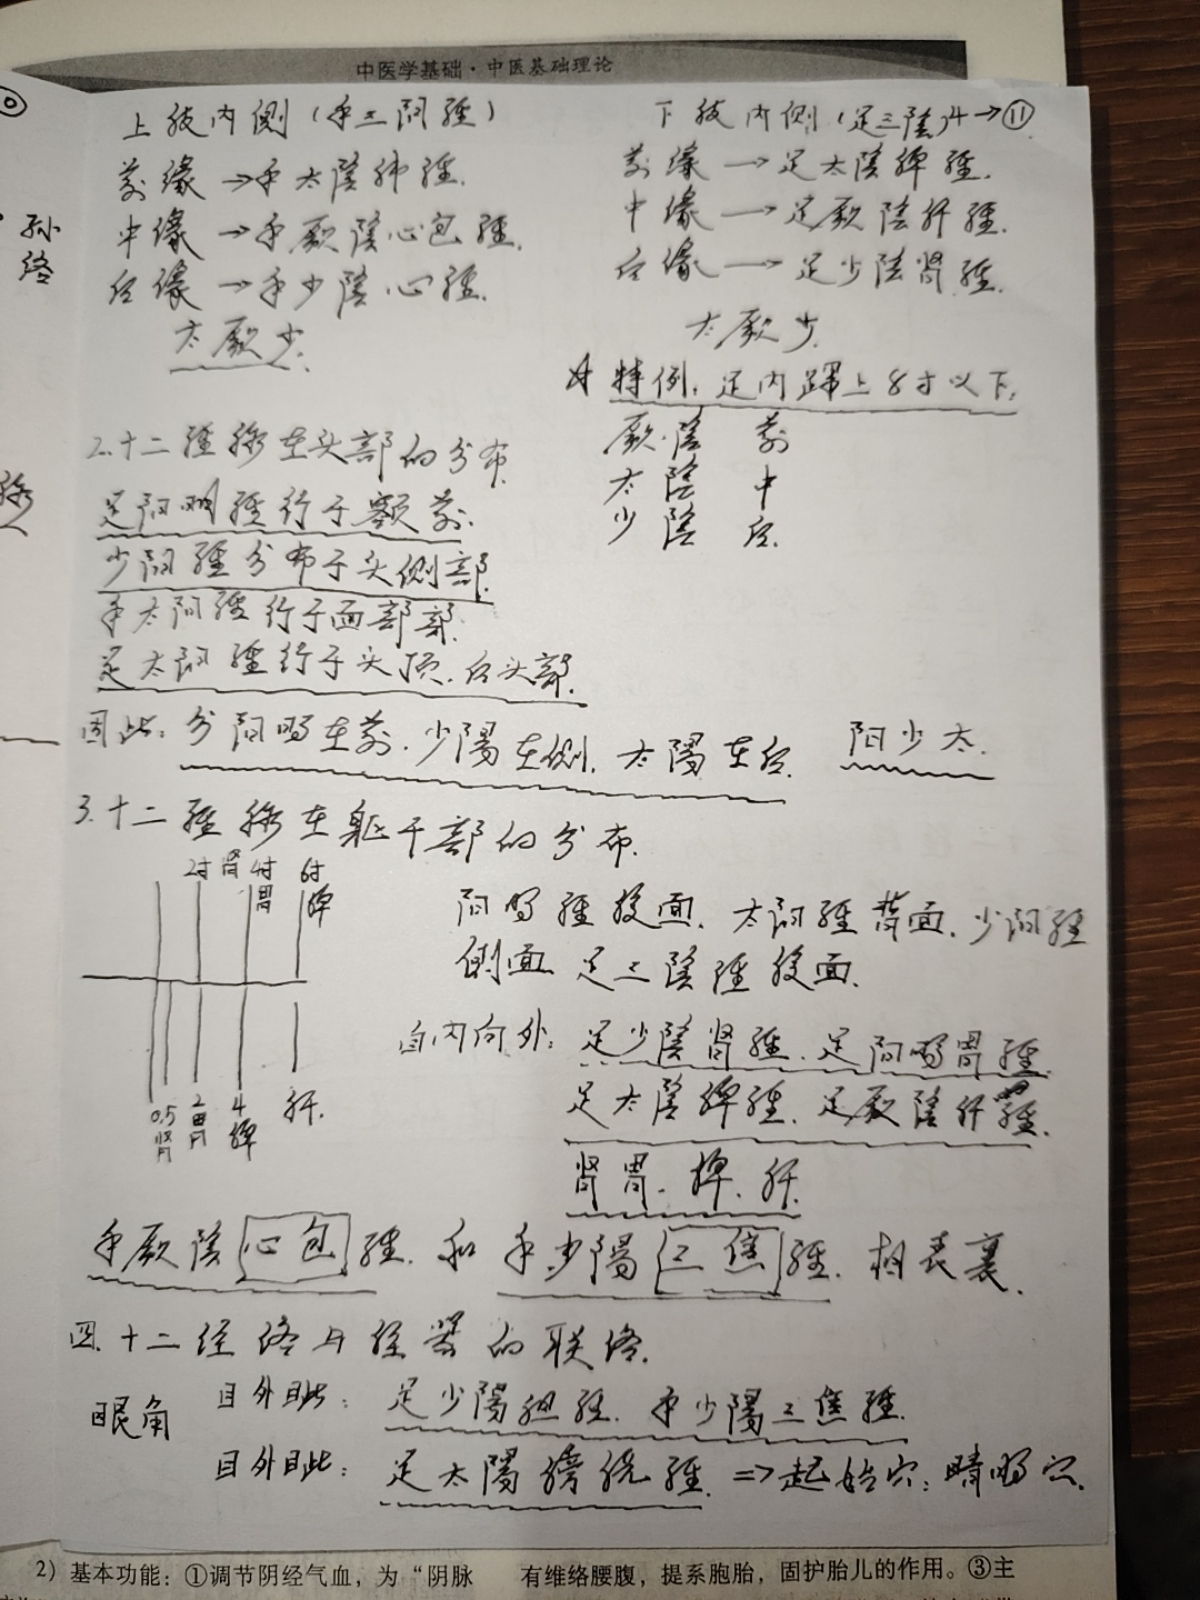 中医学基础·中医基础理论
上肢内侧(手三阴經)
前缘→手太陰肺經.
中缘→手厥陰心包經.
后缘→手少陰心經.
太厥少.
下肢内侧(足三陰)4→⑪
前缘→足太陰脾經.
中缘→足厥陰肝經.
后缘→足少陰肾經.
太厥少.
特例.足内踝上8寸以下.
厥陰 前
太陰 中
少陰 后.
孙
络
2.十二經脉在头部的分布.
足阳明經行于额前.
少阳經分布于头侧部.
手太阳經行于面部部.
足太阳經行于头顶.后头部.
因此:分阳明在前.少陽在侧.太陽在后. 阳少太.
3.十二經脉在躯干部的分布.
2寸肾 4寸胃 6寸脾
阳明經腹面.太阳經背面.少阳經
侧面 足三陰經腹面.
自内向外:足少陰肾經.足阳明胃經
足太陰脾經.足厥陰肝經.
0.5肾 2胃 4脾 肝.
肾胃.脾.肝.
手厥陰心包經.和手少陽三焦經.相表裏.
四.十二经络与经器的联络.
眼角
目外眦:足少陽胆經.手少陽三焦經.
目外眦:足太陽膀胱經⇒起始穴:睛明穴.
2)基本功能:①调节阴经气血,为“阴脉
有维络腰腹,提系胞胎,固护胎儿的作用。③主